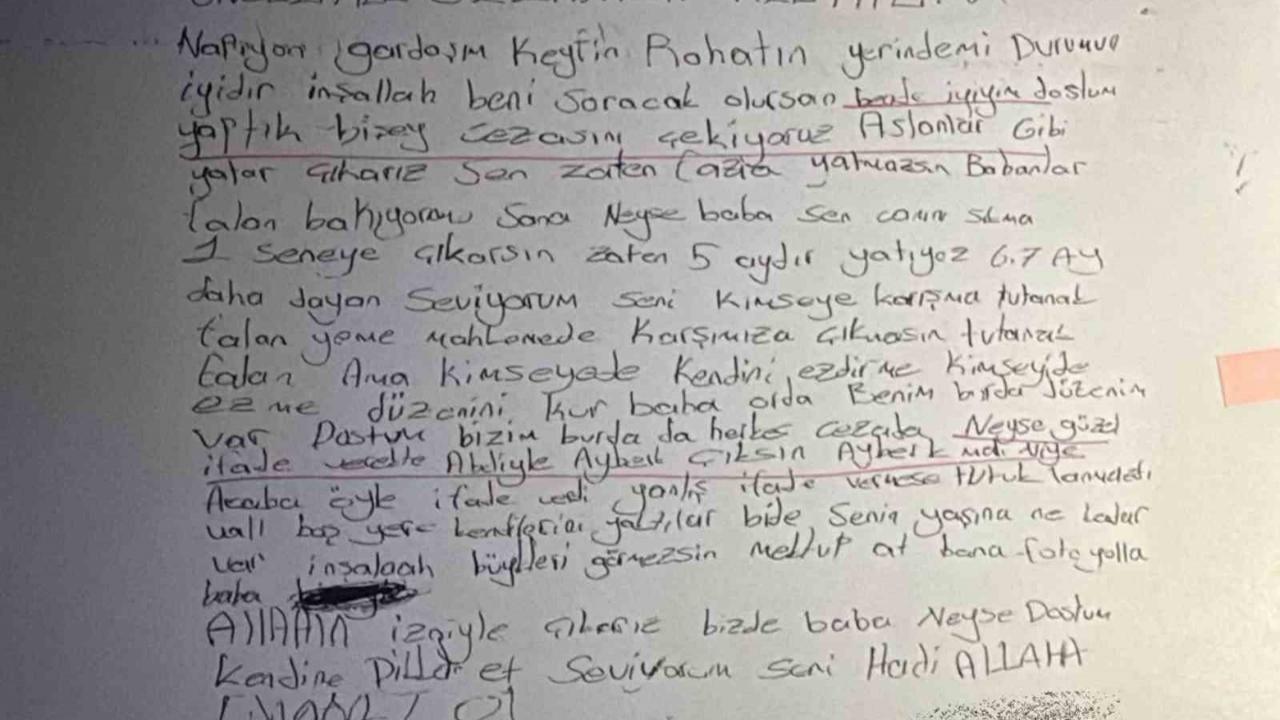 Napıyon gardaşım Keyfin Rahatın yerindemi Durumun
iyidir inşallah beni soracak olursan bende iyiyim dostum
yaptık bizey cezasını çekiyoruz Aslanlar Gibi
yatar çıkarız Sen zaten fazla yatmazsın Babanlar
falan bakıyorau Sana Neyse baba sen canını sıkma
1 seneye çıkarsın zaten 5 aydır yatıyoz 6.7 AY
daha dayan Seviyorum seni Kimseye karışma tutanak
falan yeme mahkemede Karşımıza çıkmasın tutanak
falan Ama kimseyede Kendini ezdirme Kimseyide
ezme düzenini Kur baba orda Benim burda düzenim
var Dostum bizim burda da herkes cezada Neyse güzel
ifade Abliyle Ayberk çıksın Ayberk niye
Acaba öyle ifade verdi yanlış ifade vermese tutuk
boş yere yattılar bide Senin yaşına ne kadar
var inşalaah büykleri görmezsin mektup at bana foto yolla
baba
AllAHIN izniyle çıkarız bizde baba Neyse Dostum
Kendine Dikkat et Seviyorum seni Hadi ALLAHA